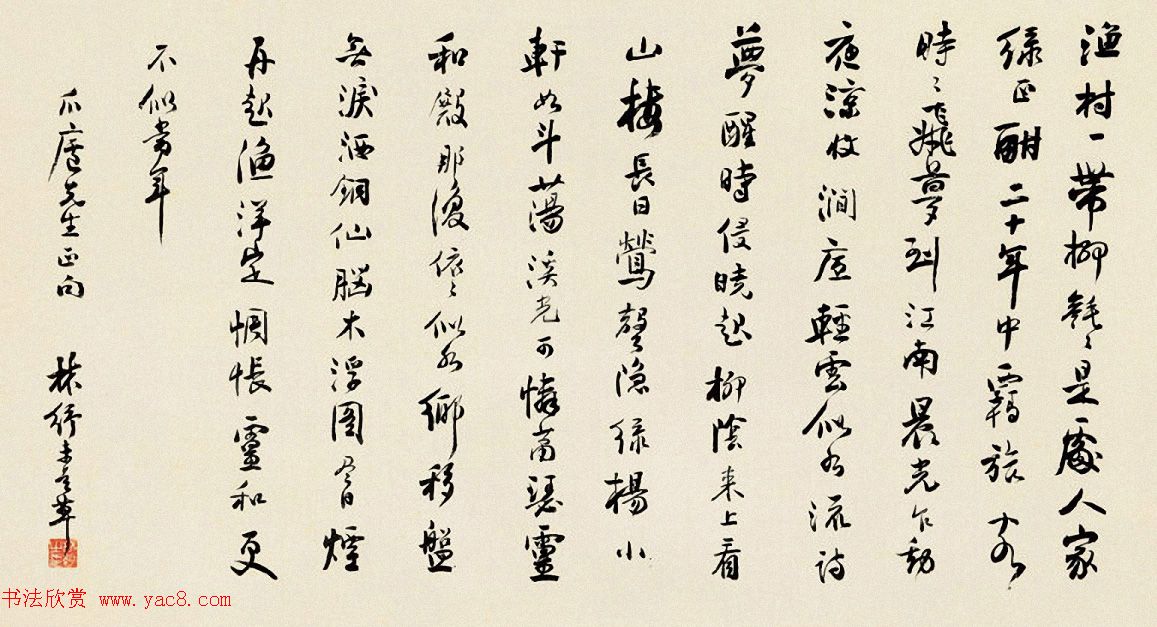 漁村一帶柳毿〻是處人家
綠正酣二十年中羈旅客
時〻飛夢到江南晨光乍動
夜涼收澗底輕雲似水流詩
夢醒時侵曉起柳陰來上看
山樓長日鶯聲隐綠楊小
軒如斗蕩溪光可憐蕭瑟靈
和殿那復依〻似水鄉移盤
無淚洒銅仙腦木浮圖冒煙
再起漁洋定惆悵靈和更
不似當年
爪廬先生正向
林紓未是草
书法欣赏 www.yac8.com